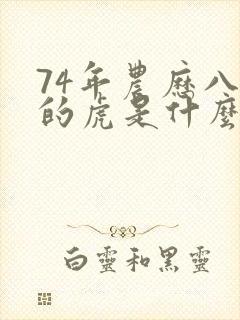 74年農历八
的虎是什麼
白靈和黑靈